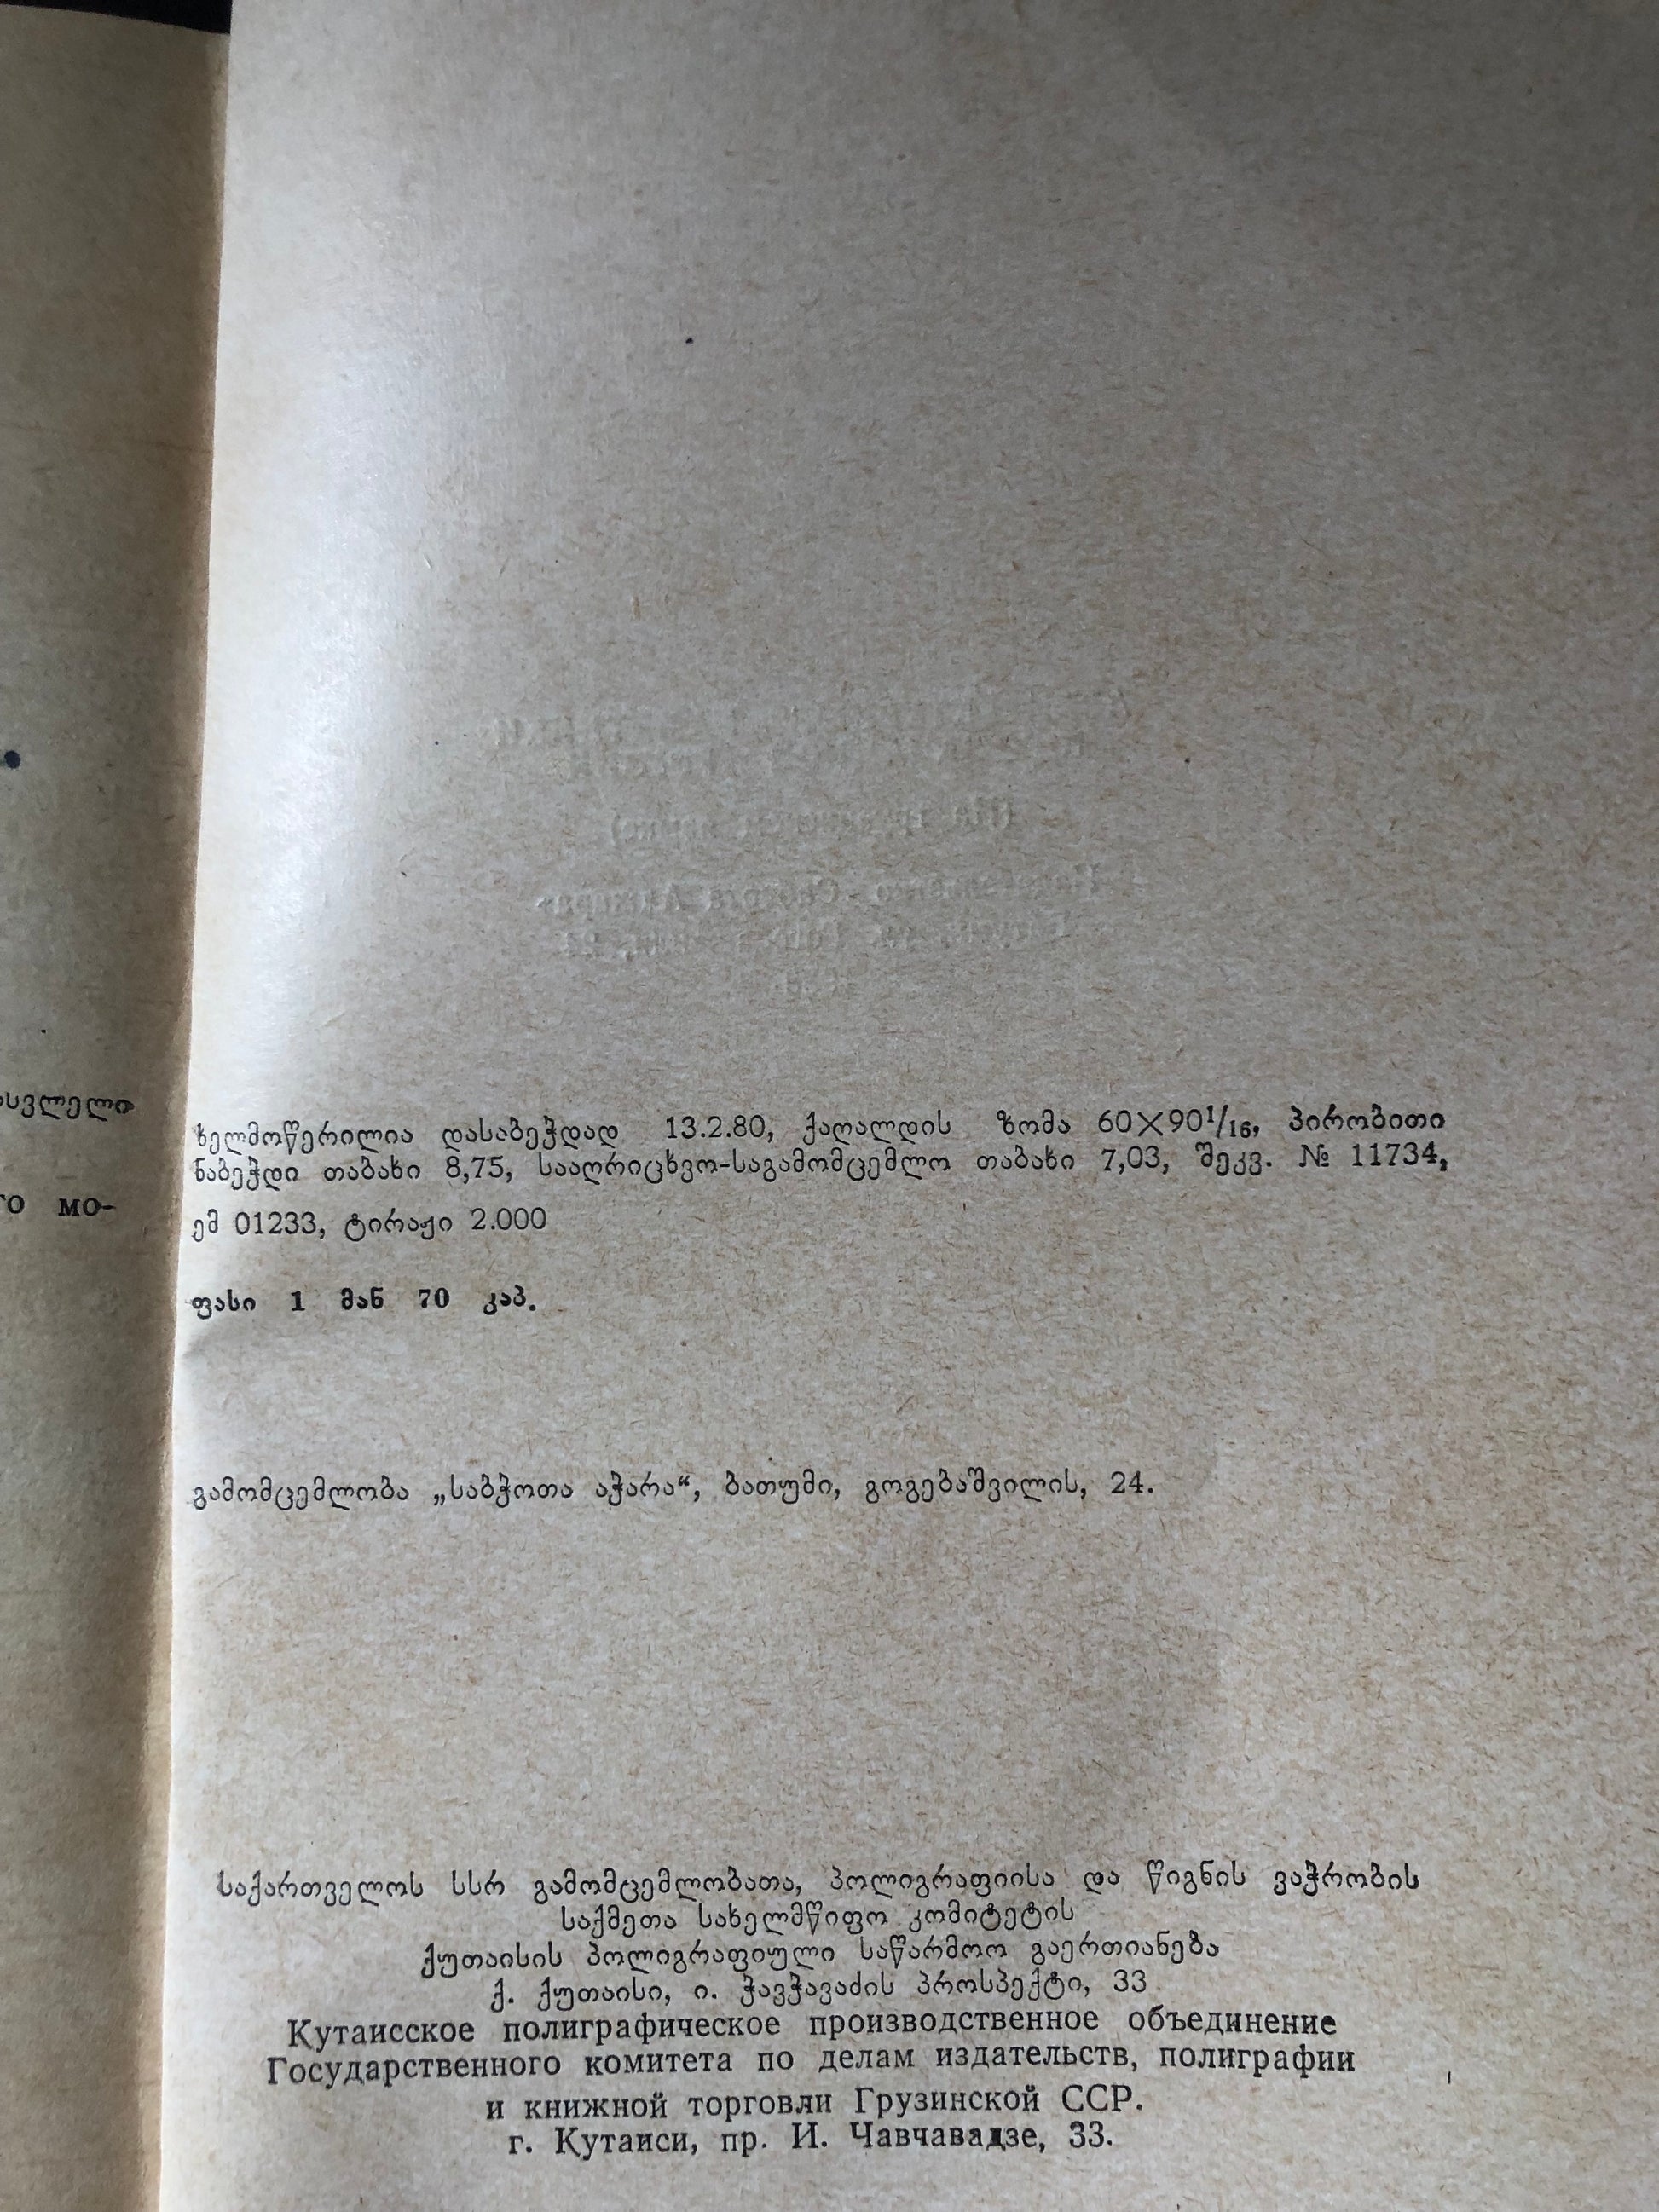 სვლელი
ГО МО-
ხელმოწერილია დასაბეჭდად 13.2.80, ქაღალდის ზომა 60×90¹/₁₆, პირობითი
ნაბეჭდი თაბახი 8,75, სააღრიცხვო-საგამომცემლო თაბახი 7,03, შეკვ. № 11734,
ემ 01233, ტირაჟი 2.000
ფასი 1 მან 70 კაპ.
გამომცემლობა „საბჭოთა აჭარა“, ბათუმი, გოგებაშვილის, 24.
საქართველოს სსრ გამომცემლობათა, პოლიგრაფიისა და წიგნის ვაჭრობის
საქმეთა სახელმწიფო კომიტეტის
ქუთაისის პოლიგრაფიული საწარმოო გაერთიანება
ქ. ქუთაისი, ი. ჭავჭავაძის პროსპექტი, 33
Кутаисское полиграфическое производственное объединение
Государственного комитета по делам издательств, полиграфии
и книжной торговли Грузинской ССР.
г. Кутаиси, пр. И. Чавчавадзе, 33.